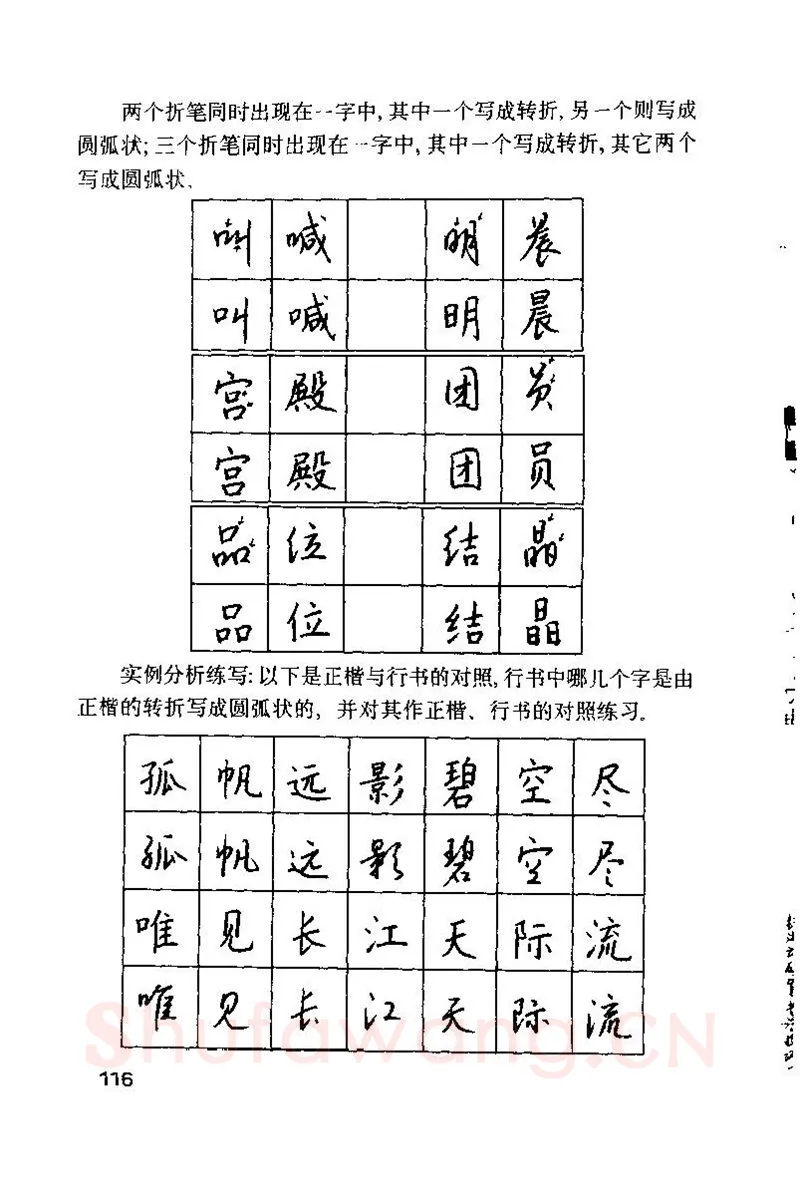 两个折笔同时出现在一字中,其中一个写成转折,另一个则写成
圆弧状;三个折笔同时出现在一字中,其中一个写成转折,其它两个
写成圆弧状.
叫 喊 明 晨
叫 喊 明 晨
宫 殿 团 员
宫 殿 团 员
品 位 结 晶
品 位 结 晶
实例分析练写:以下是正楷与行书的对照,行书中哪几个字是由
正楷的转折写成圆弧状的,并对其作正楷、行书的对照练习。
孤 帆 远 影 碧 空 尽
孤 帆 远 影 碧 空 尽
唯 见 长 江 天 际 流
唯 见 长 江 天 际 流
Shufawang.CN
116